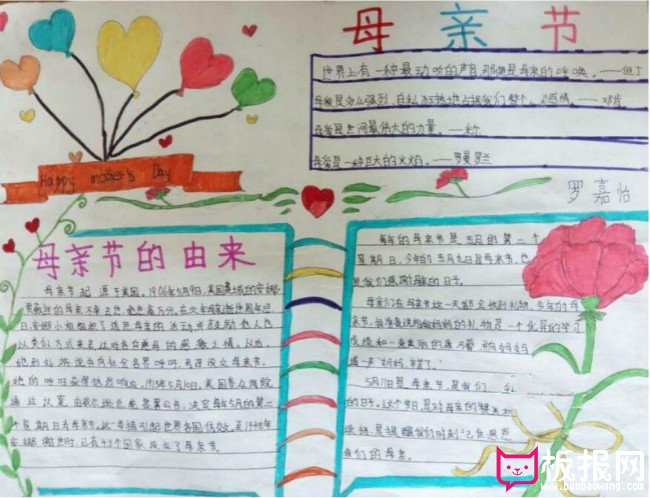 母亲节
世界上有一种最动听的声音，那便是母亲的呼唤。——但丁
母爱是多么强烈、自私、狂热地占据我们整个心灵的感情。——邓肯
母爱是世间最伟大的力量。——米尔
母爱是一种巨大的火焰。——罗曼·罗兰
Happy mother's Day
罗嘉怡
母亲节的由来
母亲节起源于美国。1906年5月9日，美国费城的安娜
贾薇丝的母亲不幸去世，她悲痛万分。在次年母亲逝世周年忌
日，安娜小姐组织了追思母亲的活动，并鼓励他人也
以类似方式来表达对各自慈母的感激之情。从此，
她到处游说并向社会各界呼吁，号召设立母亲节。
她的呼吁获得热烈响应。1913年5月10日，美国参众两院
通过议案，由威尔逊总统签署公告，决定每年5月的第二
个星期日为母亲节。此举措引起世界各国仿效，至1948年
安娜谢世时，已有43个国家设立了母亲节。
每年的母亲节是五月的第二个
星期日，今年的五月九日是母亲节，也
是我们感谢母亲的日子。
母亲们在母亲节这一天都会收到礼物，今年的母
亲节，我准备送给妈妈的礼物是一个优异的学习
成绩和一束美丽的康乃馨，祝妈妈
道一声“妈妈，辛苦了。”
5月11日是母亲节，是我们
的日子。这个节日是对母亲的
我们的母亲。
板报网
www.banbaowang.com